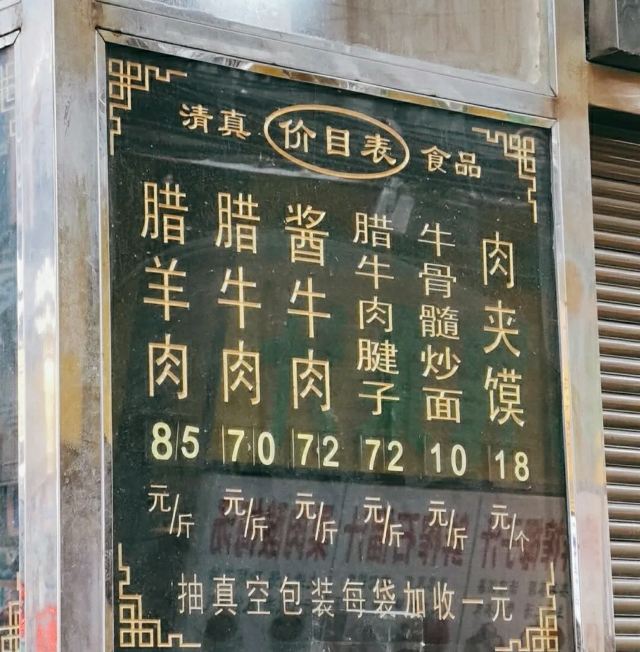 清真 价目表 食品
腊羊肉 85 元/斤
腊牛肉 70 元/斤
酱牛肉 72 元/斤
腊牛肉腱子 72 元/斤
牛骨髓炒面 10 元/斤
肉夹馍 18 元/个
抽真空包装每袋加收一元